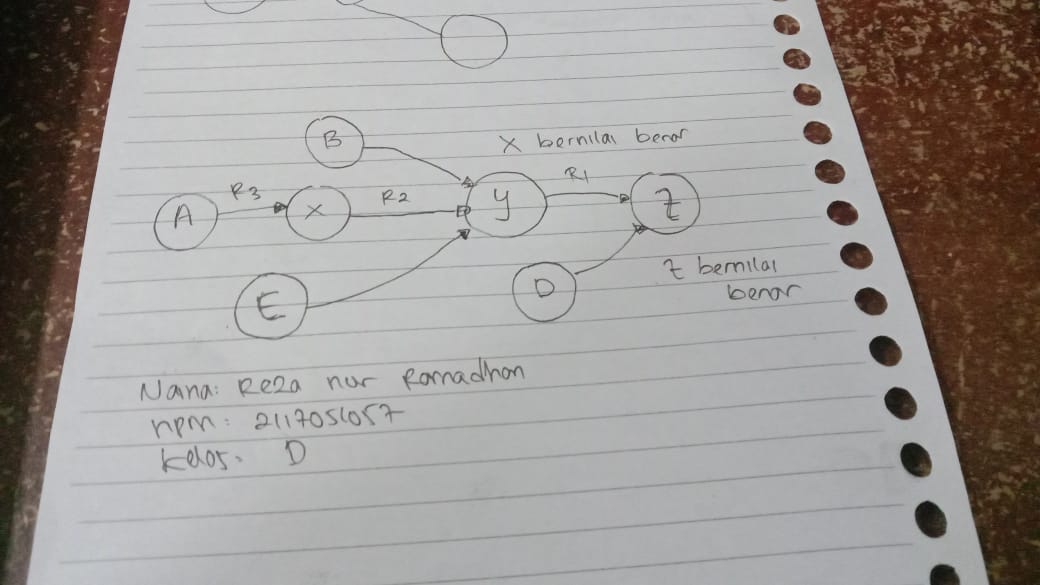 B
X bernilai benar
R3
R2
R1
A
X
y
Z
E
D
Z bernilai
benar
Nama: Reza nur Ramadhan
npm: 2117051057
kelas: D